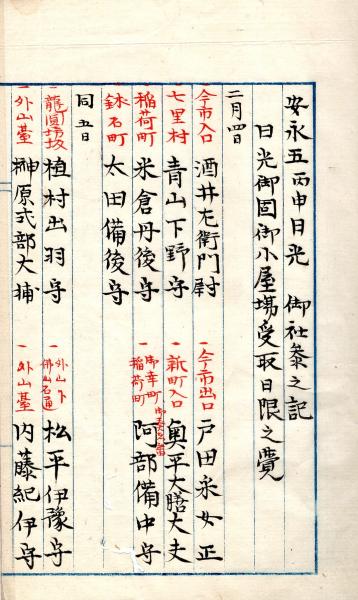 安永五丙申日光 御社参之記
日光御固御小屋場受取日限之覚
二月四日
一今市入口 酒井左衛門尉
一今市出口 戸田采女正
一七里村 青山下野守
一新町入口 奥平大膳大夫
一稲荷町 米倉丹後守
一御幸町 稲荷町 阿部備中守
一鉢石町 太田備後守
同五日
一龍蔵坊坂 植村出羽守
一外山下 佛岩通 松平伊豫守
一外山臺 榊原式部大輔
一外山臺 内藤紀伊守